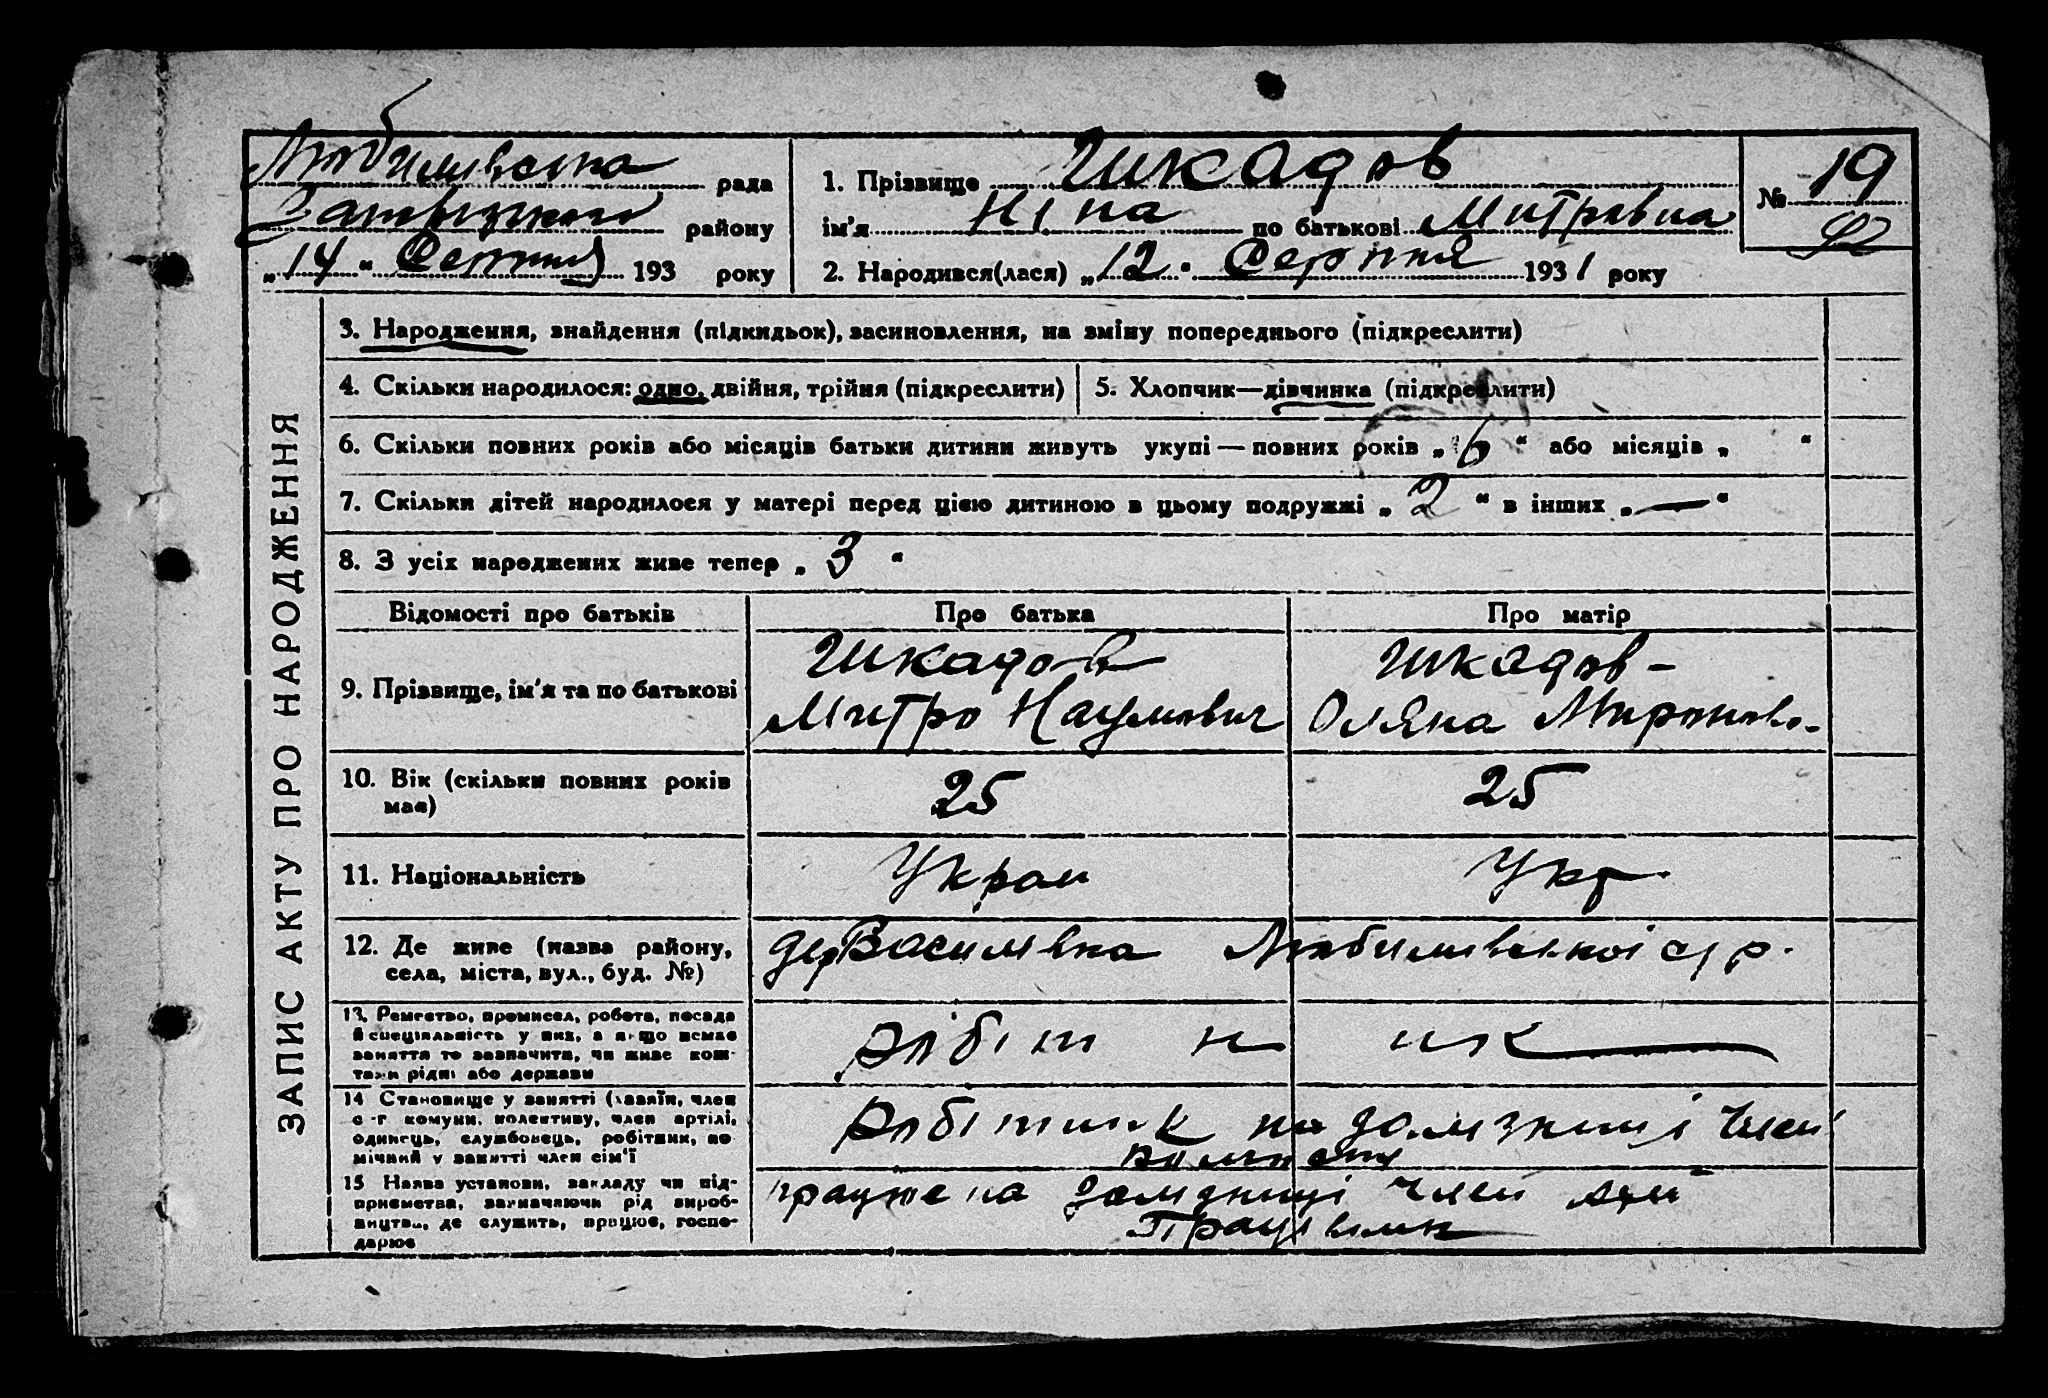 Любимівська рада
району
„14“ Серпня 193 року
1. Прізвище Шкадов
ім'я Ніна по батькові Митровна
2. Народився(лася) „12“ Серпня 1931 року
№ 19
ЗАПИС АКТУ ПРО НАРОДЖЕННЯ
3. Народження, знайдення (підкидьок), засиновлення, на зміну попереднього (підкреслити)
4. Скільки народилося: одно, двійня, трійня (підкреслити)
5. Хлопчик—дівчинка (підкреслити)
6. Скільки повних років або місяців батьки дитини живуть укупі — повних років „6“ або місяців „ “
7. Скільки дітей народилося у матері перед цією дитиною в цьому подружжі „2“ в інших „—“
8. З усіх народжених живе тепер „3“
Відомості про батьків
Про батька
Про матір
9. Прізвище, ім'я та по батькові
Шкадов
Митро Наумович
Шкадов-
Оляна Миронов-
10. Вік (скільки повних років
має)
25
25
11. Національність
Украи
Укр.
12. Де живе (назва району,
села, міста, вул., буд. №)
дер Василівка Любимівської с/р.
13. Ремество, промисел, робота, посада
й спеціяльність у них, а якщо немає
заняття то зазначити, чи живе кош-
тами рідні або держави
робітник
14 Становище у занятті (хазяїн, член
с-г комуни, колективу, член артілі,
одинець, службовець, робітник, по-
мічний у занятті член сім'ї
Робітник на залізниці член
15 Назва установи, закладу чи під-
приємства, зазначаючи рід вироб-
ництва, де служить, працює, госпо-
дарює
працює на залізниці член